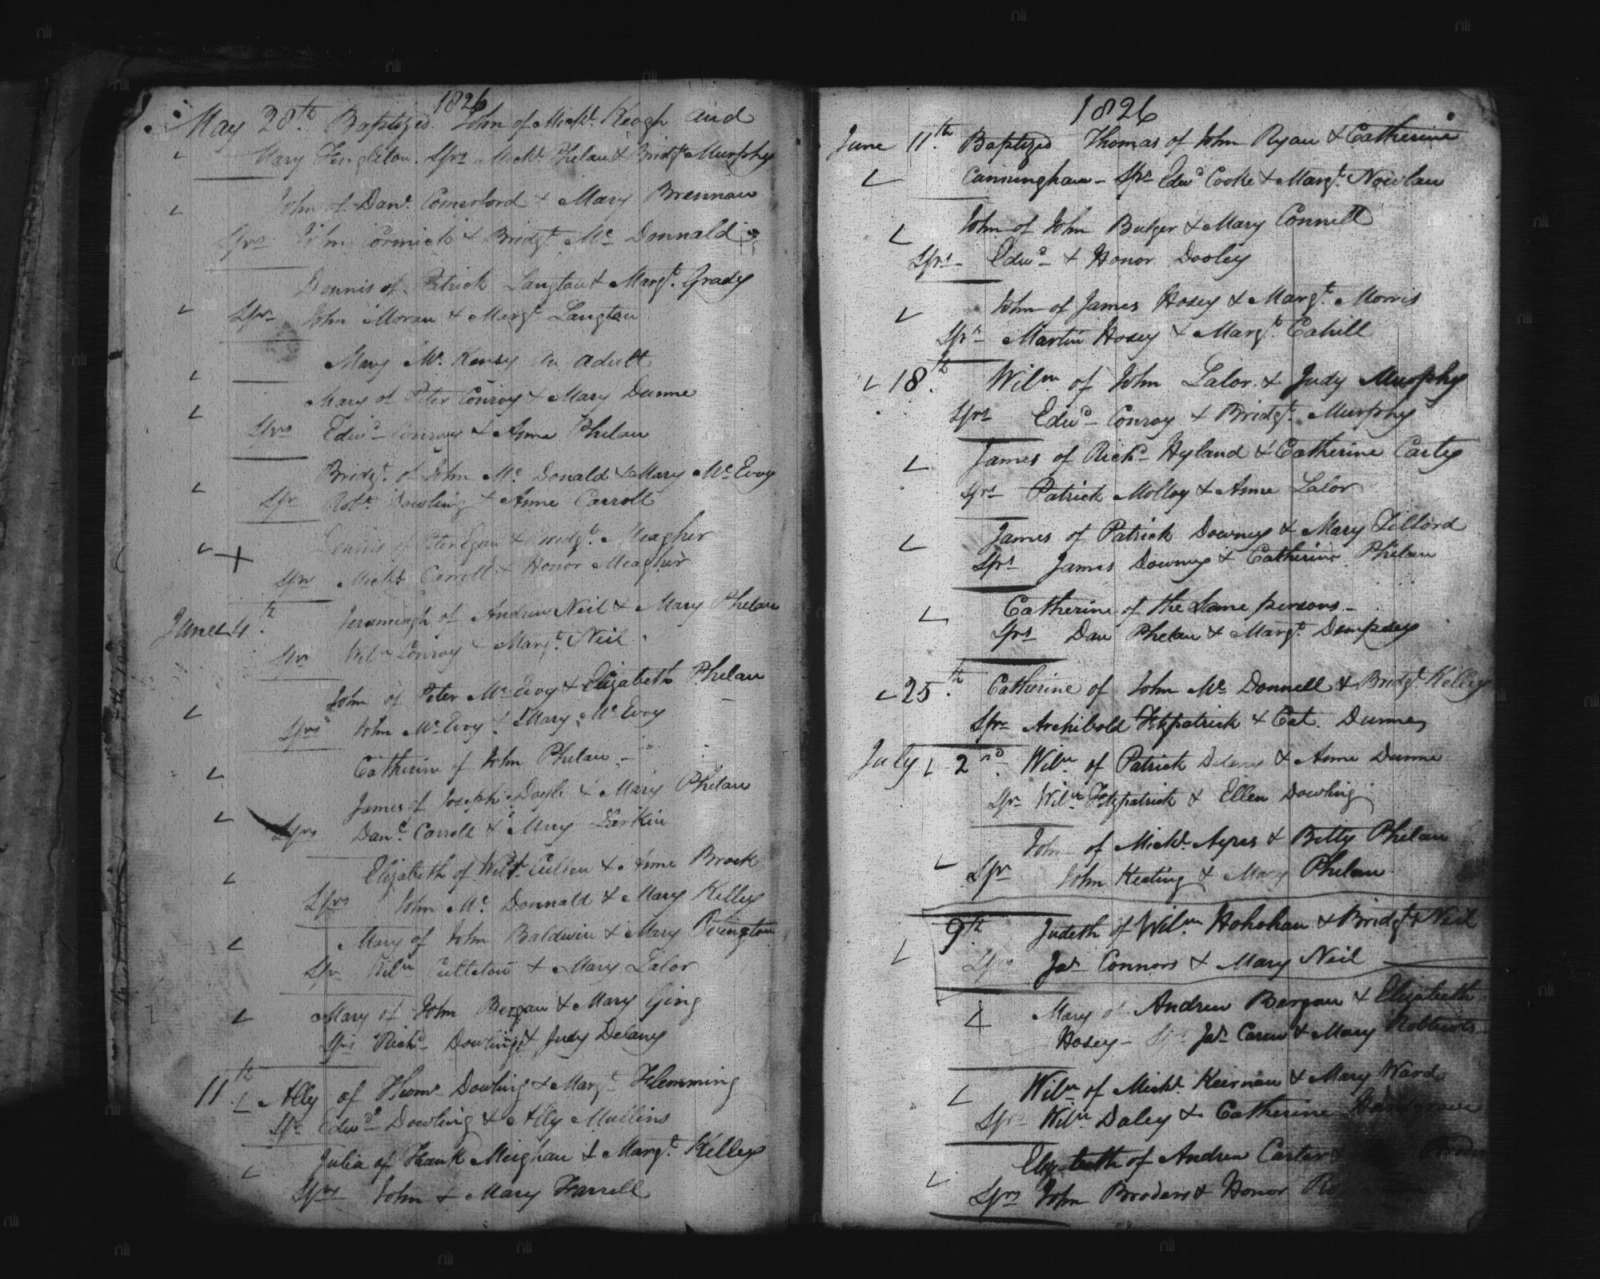 1826
May 28th Baptized John of Michl. Keogh and
Mary Sprs Michl. Phelan & Bridgt. Murphy
John of Danl. Comerford & Mary Brennan
Sprs John Cormick & Bridgt. Mc Donnald
Dennis of Patrick Langton & Margt. Grady
Sprs John Moran & Margt. Langton
Mary Mc. Kensy an adult
Mary of Peter Conroy & Mary Dunne
Sprs Edwd. Conroy & Anne Phelan
Bridgt. of John Mc. Donald & Mary Mc. Evoy
Spr Robt. Dowling & Anne Carroll
of Peter Egan & Bridgt. Meagher
Sprs Michl. Carroll & Honor Meagher
June 4th. Jeremiagh of Andrew Neil & Mary Phelan
Sprs Wilm Conroy & Margt. Neil
John of Peter Mc. Evoy & Elizabeth Phelan
Sprs John Mc. Evoy & Mary Mc. Evoy
Catherine of John Phelan
James of Joseph Doyle & Mary Phelan
Sprs Danl. Carroll & Mary Larkin
Elizabeth of & Anne Brock
Sprs John Mc. Donnald & Mary Kelly
Mary of John Baldwin & Mary
Spr Wilm & Mary Lalor
Mary of John Bergan & Mary Ging
Sprs Richd. Dowling & Judy Delany
11th Ally of Thoms Dowling & Margt. Flemming
Sprs Edwd. Dowling & Ally Mullins
Julia of Frank Meighan & Margt. Kelly
Sprs John & Mary Farrell
1826
June 11th. Baptized Thomas of John Ryan & Catherine
Cunningham - Sprs Edwd Cooke & Margt. Nowlan
John of John Butger & Mary Connell
Sprs - Edwd - & Honor Dooley
John of James Hosey & Margt. Morris
Sprs Martin Hosey & Margt. Cahill
18th. Wilm of John Lalor & Judy Murphy
Sprs Edwd - Conroy & Bridgt. Murphy
James of Richd - Hyland & Catherine Carty
Sprs Patrick Molloy & Anne Lalor
James of Patrick Downey & Mary Tilford
Sprs James Downey & Catherine Phelan
Catherine of the Same persons -
Sprs Dan Phelan & Margt. Dempsey
25th. Catherine of John Mc. Donnell & Bridgt. Kelly
Sprs Archibold Fitzpatrick & Cat. Dunne
July 2nd. Wilm of Patrick & Anne Dunne
Spr Wilm Fitzpatrick & Ellen Dowling
John of Michl. Ayres & Betty Phelan
Sprs John Keating & Mary Phelan
9th. Judeth of Wilm Hohohan & Bridgt. Neil
Sprs Jas. Connors & Mary Neil
Mary of Andrew Bergan & Elizabeth
Hosey - Jas. Carew & Mary
Wilm of Michl. Keernan & Mary Ward
Sprs Wilm Daley & Catherine
Elizabeth of Andrew Carter &
Sprs John Broders & Honor